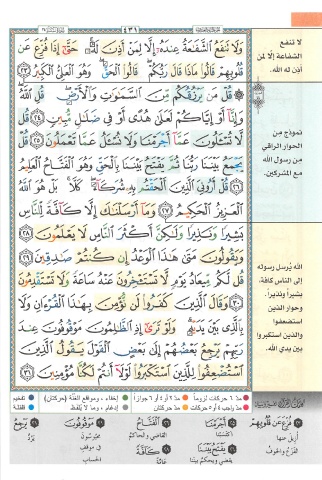 ٤٣١
وَلَا تَنفَعُ ٱلشَّفَـٰعَةُ عِندَهُۥٓ إِلَّا لِمَنْ أَذِنَ لَهُۥ ۚ حَتَّىٰٓ إِذَا فُزِّعَ عَن
قُلُوبِهِمْ قَالُوا۟ مَاذَا قَالَ رَبُّكُمْ ۖ قَالُوا۟ ٱلْحَقَّ ۖ وَهُوَ ٱلْعَلِىُّ ٱلْكَبِيرُ ٢٣
۞ قُلْ مَن يَرْزُقُكُم مِّنَ ٱلسَّمَـٰوَٰتِ وَٱلْأَرْضِ ۖ قُلِ ٱللَّهُ ۖ
وَإِنَّآ أَوْ إِيَّاكُمْ لَعَلَىٰ هُدًى أَوْ فِى ضَلَـٰلٍ مُّبِينٍ ٢٤ قُل
لَّا تُسْـَٔلُونَ عَمَّآ أَجْرَمْنَا وَلَا نُسْـَٔلُ عَمَّا تَعْمَلُونَ ٢٥ قُلْ
يَجْمَعُ بَيْنَنَا رَبُّنَا ثُمَّ يَفْتَحُ بَيْنَنَا بِٱلْحَقِّ وَهُوَ ٱلْفَتَّاحُ ٱلْعَلِيمُ
٢٦ قُلْ أَرُونِىَ ٱلَّذِينَ أَلْحَقْتُم بِهِۦ شُرَكَآءَ ۖ كَلَّا ۚ بَلْ هُوَ ٱللَّهُ
ٱلْعَزِيزُ ٱلْحَكِيمُ ٢٧ وَمَآ أَرْسَلْنَـٰكَ إِلَّا كَآفَّةً لِّلنَّاسِ
بَشِيرًا وَنَذِيرًا وَلَـٰكِنَّ أَكْثَرَ ٱلنَّاسِ لَا يَعْلَمُونَ ٢٨
وَيَقُولُونَ مَتَىٰ هَـٰذَا ٱلْوَعْدُ إِن كُنتُمْ صَـٰدِقِينَ ٢٩
قُل لَّكُم مِّيعَادُ يَوْمٍ لَّا تَسْتَـْٔخِرُونَ عَنْهُ سَاعَةً وَلَا تَسْتَقْدِمُونَ
٣٠ وَقَالَ ٱلَّذِينَ كَفَرُوا۟ لَن نُّؤْمِنَ بِهَـٰذَا ٱلْقُرْءَانِ وَلَا
بِٱلَّذِى بَيْنَ يَدَيْهِ ۗ وَلَوْ تَرَىٰٓ إِذِ ٱلظَّـٰلِمُونَ مَوْقُوفُونَ عِندَ
رَبِّهِمْ يَرْجِعُ بَعْضُهُمْ إِلَىٰ بَعْضٍ ٱلْقَوْلَ يَقُولُ ٱلَّذِينَ
ٱسْتُضْعِفُوا۟ لِلَّذِينَ ٱسْتَكْبَرُوا۟ لَوْلَآ أَنتُمْ لَكُنَّا مُؤْمِنِينَ ٣١
لا تنفع
الشفاعة إلا لمن
أذن له الله.
نموذج من
الحوار الراقي
من رسول الله
مع المشركين.
الله يُرسل رسوله
إلى الناس كافة،
بشيراً ونذيراً،
وحوار الذين
استضعفوا
والذين استكبروا
بين يدي الله.
مدّ ٦ حركات لزوماً
مدّ ٢ أو ٤ أو ٦ جوازاً
إخفاء، ومواقع الغُنَّة (حركتان)
تفخيم
مدّ واجب ٤ أو ٥ حركات
مدّ حركتان
إدغام، وما لا يُلفظ
قلقلة
فُزِّعَ عَن قُلُوبِهِمْ
أزيل عنها
الفزع والخوف
أَجْرَمْنَا
يَفْتَحُ بَيْنَنَا
يقضي ويحكم بيننا
ٱلْفَتَّاحُ
القاضي والحاكم
كَآفَّةً
مَوْقُوفُونَ
محبوسون
في موقف
الحساب
يَرْجِعُ
يَرُدّ